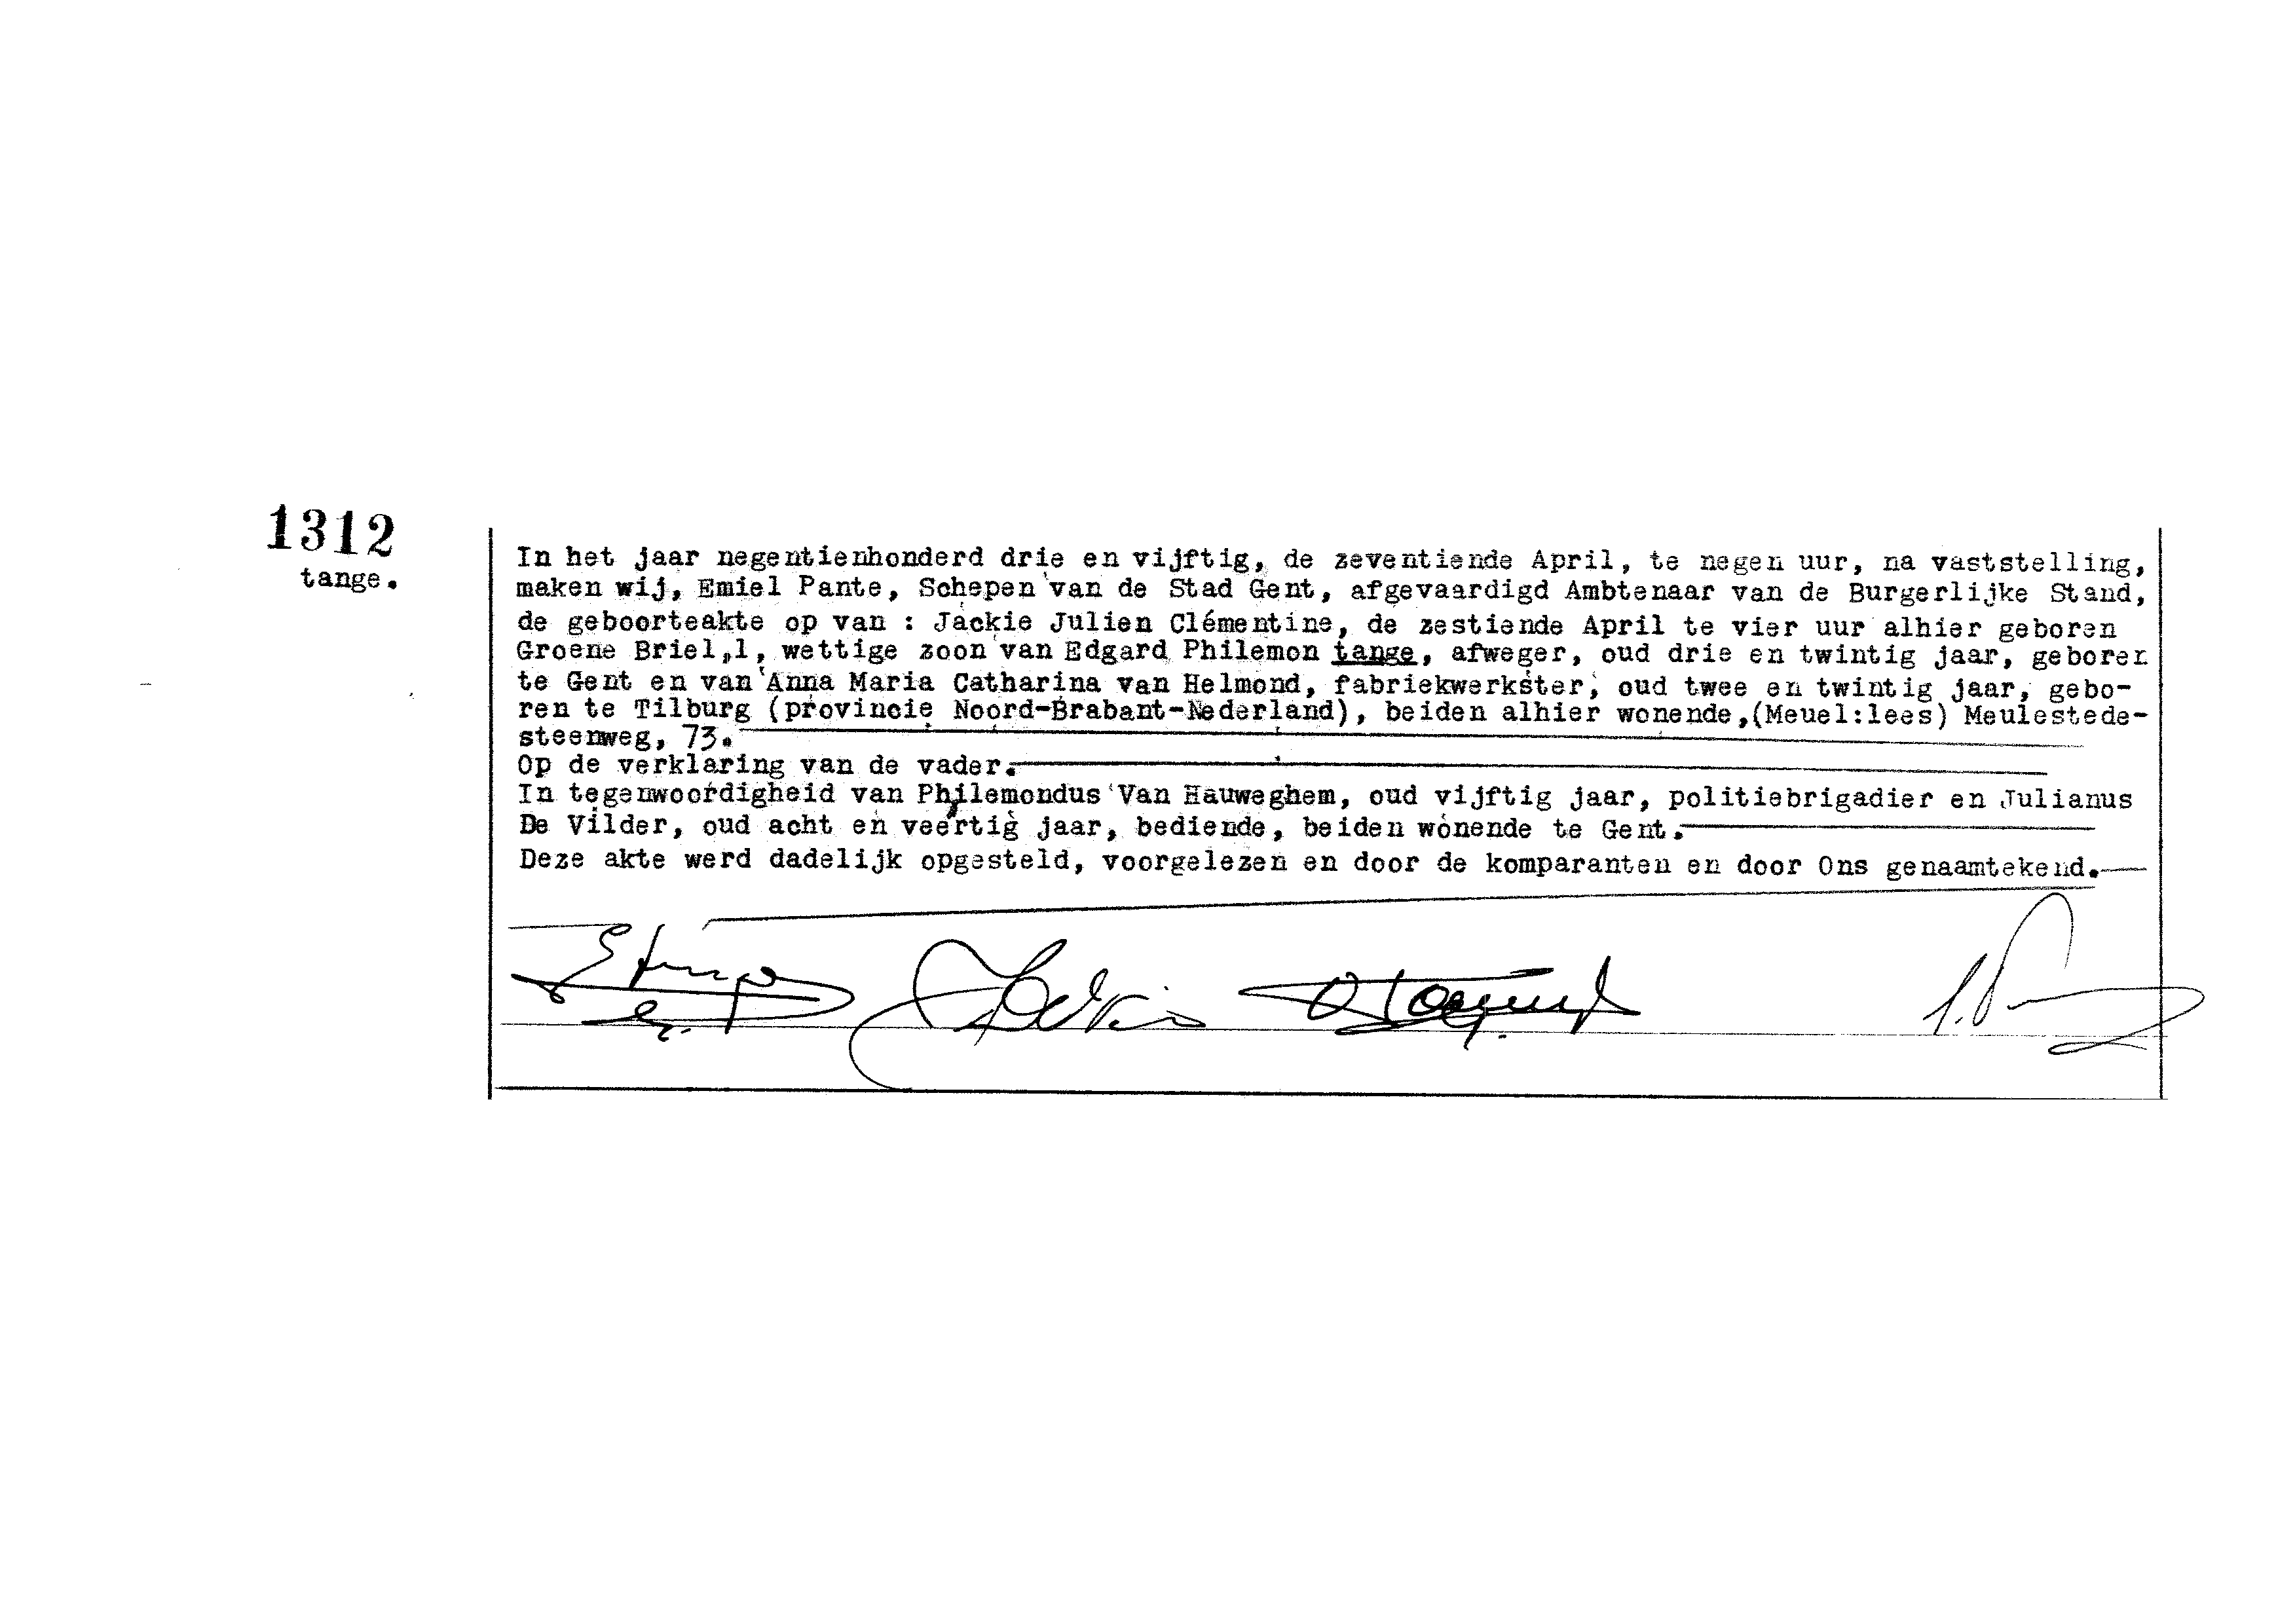 1312
tange.
In het jaar negentienhonderd drie en vijftig, de zeventiende April, te negen uur, na vaststelling,
maken wij, Emiel Pante, Schepen van de Stad Gent, afgevaardigd Ambtenaar van de Burgerlijke Stand,
de geboorteakte op van : Jackie Julien Clémentine, de zestiende April te vier uur alhier geboren
Groene Briel,1, wettige zoon van Edgard Philemon tange, afweger, oud drie en twintig jaar, geboren
te Gent en van Anna Maria Catharina van Helmond, fabriekwerkster, oud twee en twintig jaar, gebo-
ren te Tilburg (provincie Noord-Brabant-Nederland), beiden alhier wonende,(Meuel:lees) Meulestede-
steenweg, 73.
Op de verklaring van de vader.
In tegenwoordigheid van Philemondus Van Hauweghem, oud vijftig jaar, politiebrigadier en Julianus
De Vilder, oud acht en veertig jaar, bediende, beiden wonende te Gent.
Deze akte werd dadelijk opgesteld, voorgelezen en door de komparanten en door Ons genaamtekend.